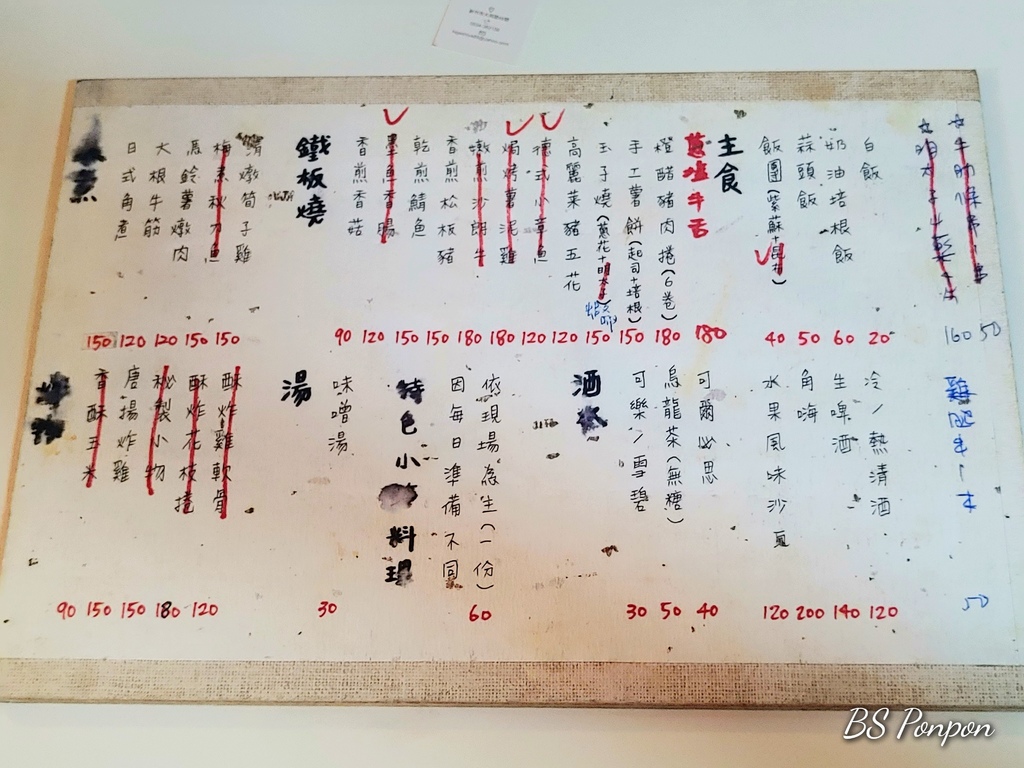 煮
日式角煮
大根牛筋
馬鈴薯燉肉
梅煮秋刀魚
清燉筍子雞
鐵板燒
香煎香菇
墨魚香腸
乾煎鯖魚
香煎松板豬
嫩煎沙朗牛
焗烤薯泥雞
德式小章魚
高麗菜豬五花
玉子燒(蔥花+明太子)
手工薯餅(起司+培根)
橙醋豬肉捲(6卷)
蔥鹽牛舌
主食
飯團(紫蘇+昆布)
蒜頭飯
奶油培根飯
白飯
☆明太子
☆牛肋條串一串
150 120 120 150 150
90 120 150 150 180 180 120 120 150 150 180 180
40 50 60 20
160 50
炸物
香酥玉米
唐揚炸雞
秘製小物
酥炸花枝捲
酥炸雞軟骨
湯
味噌湯
特色小料理
因每日準備不同
依現場為主(一份)
酒水
可樂/雪碧
烏龍茶(無糖)
可爾必思
水果風味沙瓦
角嗨
生啤酒
冷/熱清酒
90 150 150 180 120
30
60
30 50 40
120 200 140 120
50
BS Ponpon